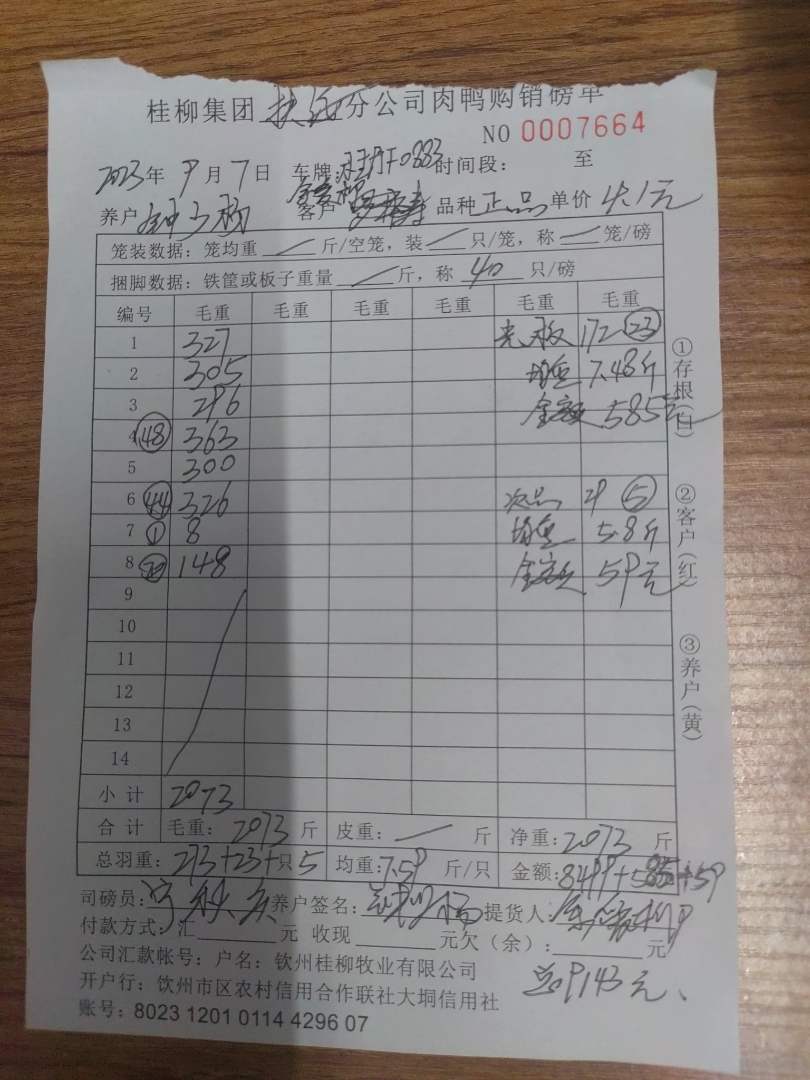 桂柳集团 分公司肉鸭购销磅单
NO 0007664
2023年 9月7日 车牌: F0883 时间段: 至
养户 客户 品种 正品 单价 4.1元
笼装数据: 笼均重 斤/空笼, 装 只/笼, 称 笼/磅
捆脚数据: 铁筐或板子重量 斤, 称 40 只/磅
编号 毛重 毛重 毛重 毛重 毛重 毛重
1 327 光板 172 23
2 305 均重 7.48斤
3 296 金额 585元
4 48 363
5 300
6 44 326 次品 29 5
7 1 8 均重 5.8斤
8 148 金额 59元
9
10
11
12
13
14
小计 2073
合计 毛重: 2073 斤 皮重: 斤 净重: 2073 斤
总羽重: 273+23+只5 均重: 7.59 斤/只 金额: 8499+585+59
司磅员: 养户签名: 提货人:
付款方式: 汇 元 收现 元欠(余): 元
公司汇款帐号: 户名: 钦州桂柳牧业有限公司
总9143元、
开户行: 饮州市区农村信用合作联社大垌信用社
账号: 8023 1201 0114 4296 07
①存根(白)
②客户(红)
③养户(黄)